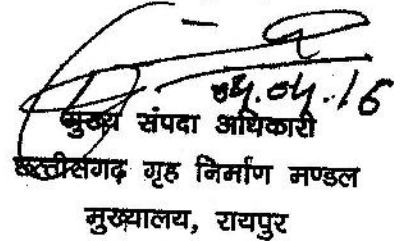 04.04.16
मुख्य संपदा अधिकारी
छत्तीसगढ़ गृह निर्माण मण्डल
मुख्यालय, रायपुर